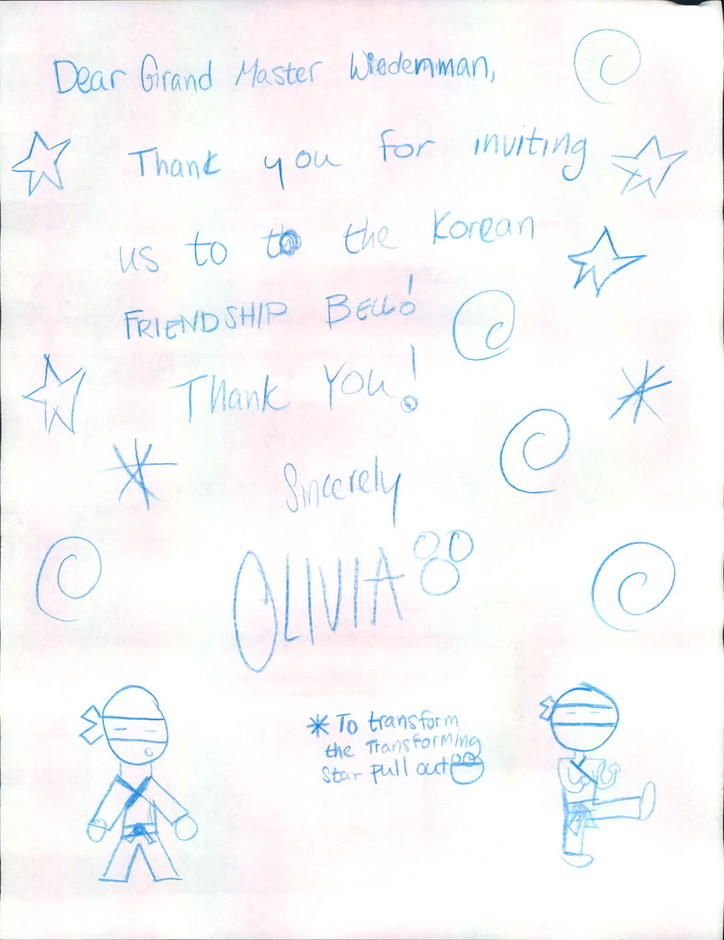 Dear Grand Master Wiedemman,
Thank you for inviting
us to to the Korean
FRIENDSHIP BELL!
Thank You!
Sincerely
OLIVIA
* To transform
the Transforming
Star pull out